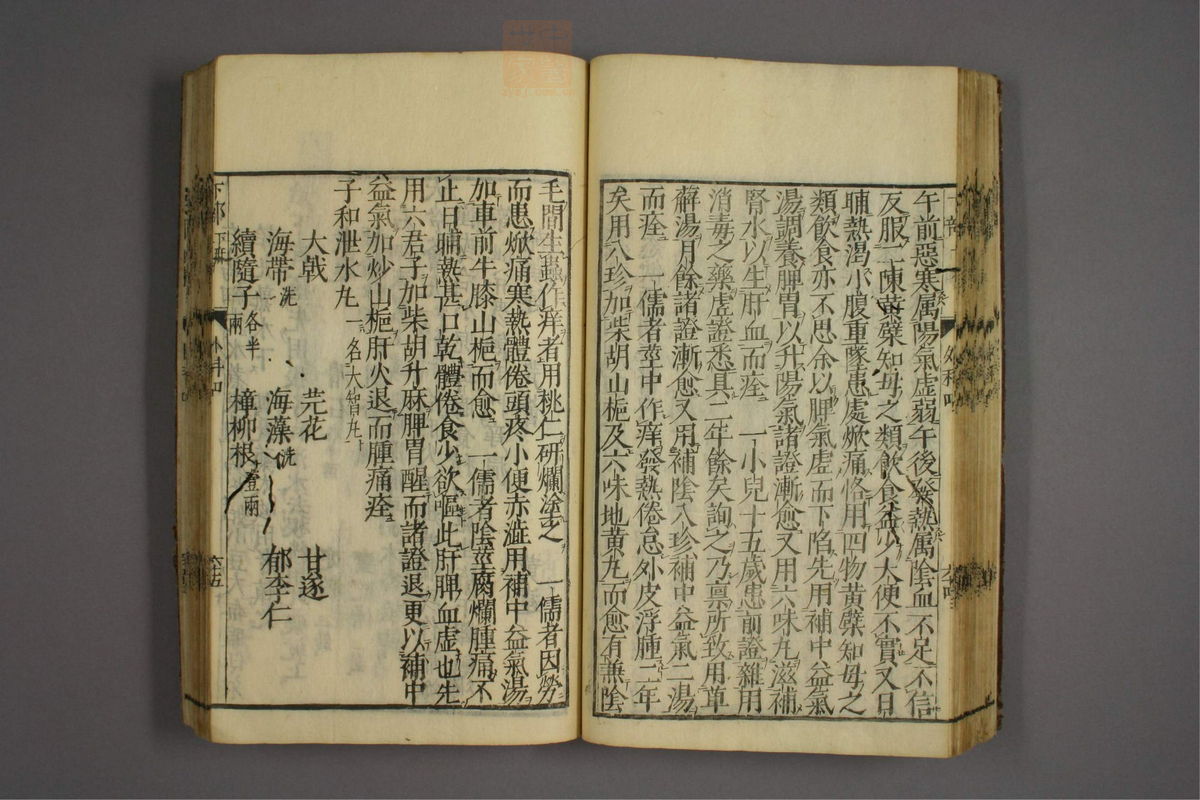 午前惡寒属陽氣虛弱午後發熱属陰血不足不信
反服二陳黃檗知母之類飲食益少大便不實又日
晡熱渴小腹重墜患處焮痛恪用四物黄檗知母之
類飲食亦不思余以脾氣虛而下陷先用補中益氣
湯調養脾胃以升陽氣諸證漸愈又用六味丸滋補
腎水以生肝血而痊 一小兒十五歲患前證雜用
消毒之藥虛證悉具二年餘矣詢之乃禀所致用萆
薢湯月餘諸證漸愈又用補陰八珍補中益氣二湯
而痊 一儒者莖中作痒發熱倦怠外皮浮腫二年
矣用八珍加柴胡山梔及六味地黄丸而愈有無陰
毛間生蟲作痒者用桃仁研爛塗之 一儒者因勞
而患焮痛寒熱體倦頭疼小便赤澁用補中益氣湯
加車前牛膝山梔而愈 一儒者陰莖腐爛腫痛不
止日晡熱甚口乾體倦食少欲嘔此肝脾血虛也先
用六君子加柴胡升麻脾胃醒而諸證退更以補中
益氣加炒山梔肝火退而腫痛痊
子和泄水丸 一名大智丸
大戟 芫花 甘遂
海帶 洗 海藻 洗 郁李仁
續隨子 各半兩 樟柳根 壹兩
下部 下疳 外科四 六十五